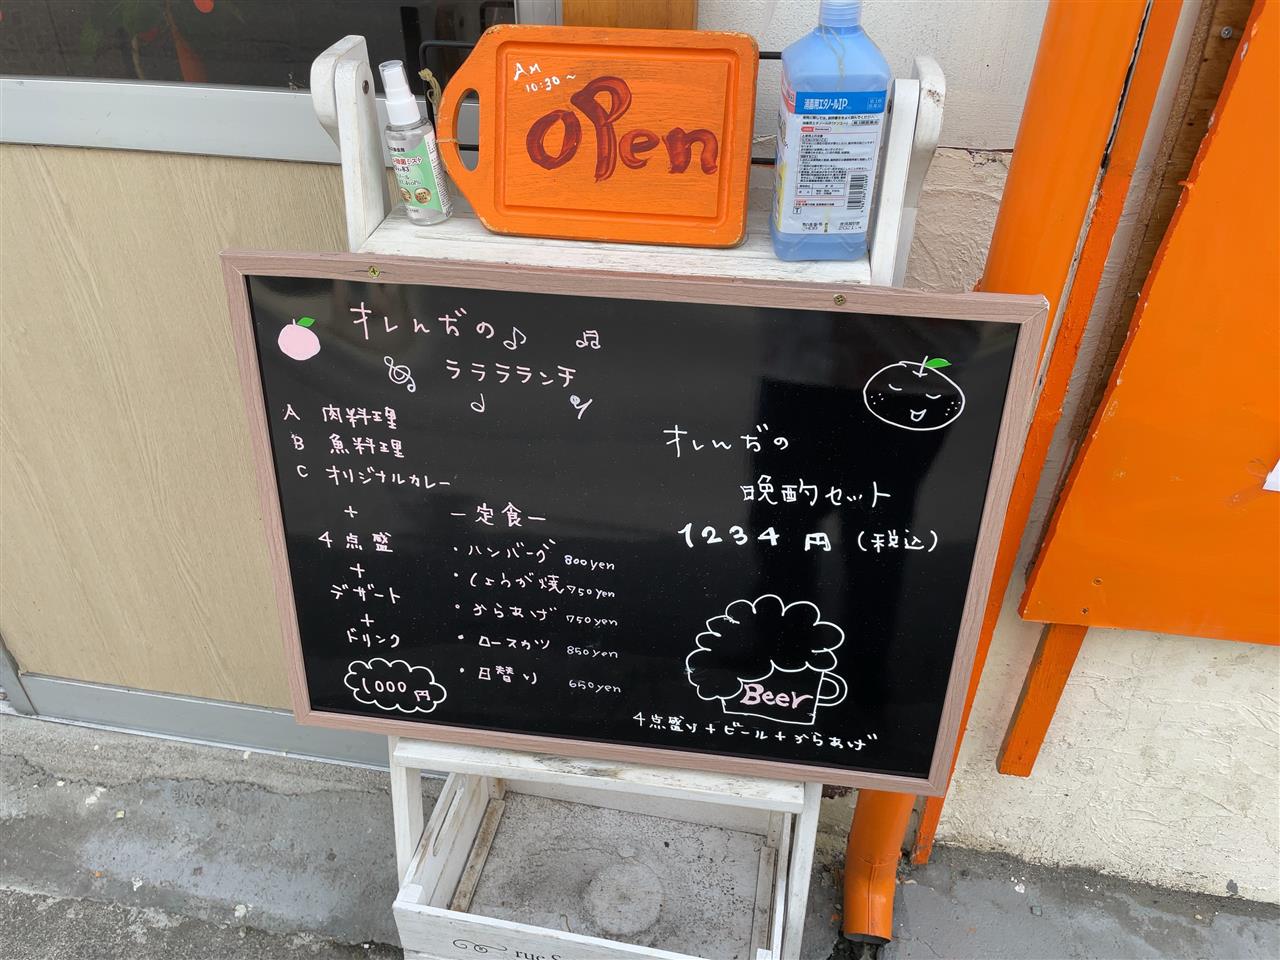 AM
10:30~
OPen
消毒用エタノールIP
オレんぢの
ラララランチ
A 肉料理
B 魚料理
C オリジナルカレー
+
4点盛
+
デザート
+
ドリンク
1000円
ー定食ー
・ハンバーグ 800yen
・しょうが焼 750yen
・からあげ 750yen
・ロースカツ 850yen
・日替り 650yen
オレんぢの
晩酌セット
1234円(税込)
Beer
4点盛り+ビール+からあげ